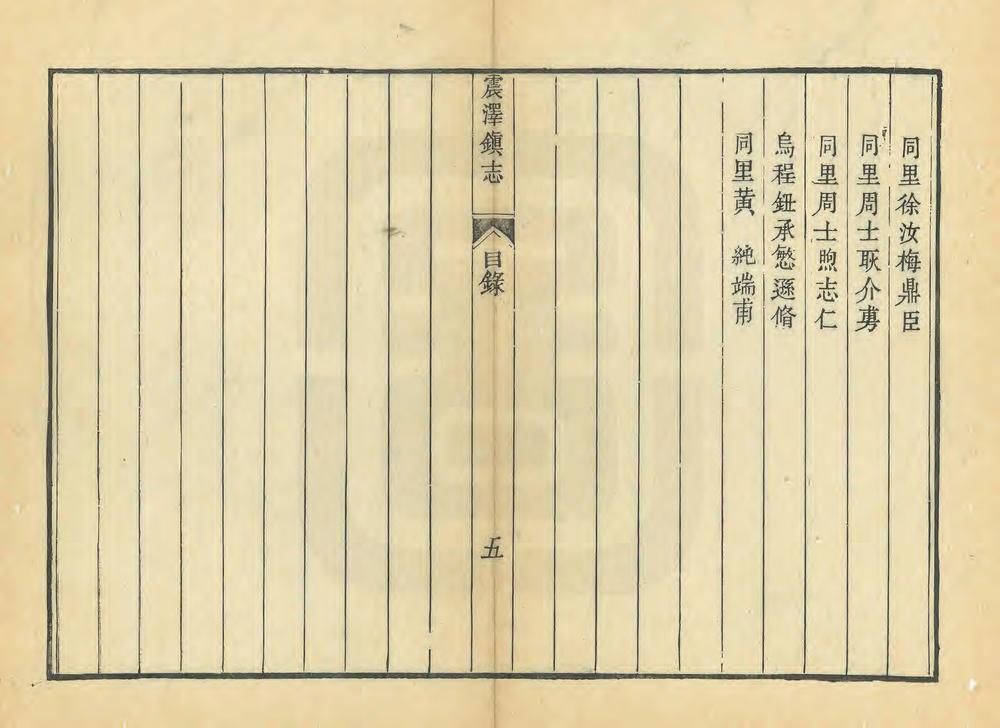 同里徐汝梅鼎臣
同里周士耿介勇
同里周士煦志仁
烏程鈕承慜遜脩
同里黃　純端甫
震澤鎭志
目錄
五